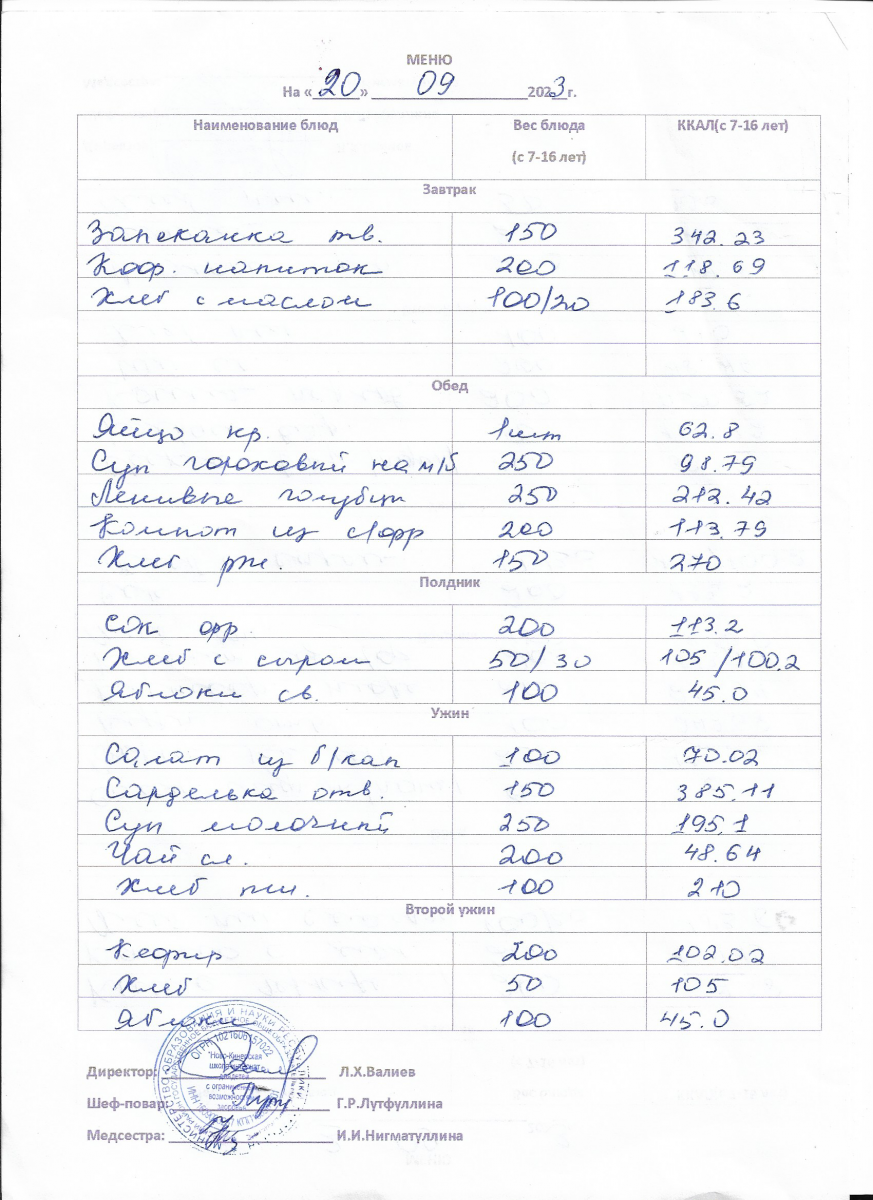 МЕНЮ
На « 20 » 09 2023 г.
Наименование блюд Вес блюда (с 7-16 лет) ККАЛ(с 7-16 лет)
Завтрак
Запеканка тв. 150 342.23
Коф. напиток 200 118.69
Хлеб с маслом 100/20 183.6
Обед
Яйцо кр. 1шт 62.8
Суп гороховый на м/б 250 98.79
Ленивые голубцы 250 212.42
Компот из с/фр 200 113.79
Хлеб рж. 150 270
Полдник
Сок фр. 200 113.2
Хлеб с сыром 50/30 105/100.2
Яблоки св. 100 45.0
Ужин
Салат из б/кап 100 70.02
Сарделька отв. 150 385.11
Суп молочный 250 195.1
Чай сл. 200 48.64
Хлеб пш. 100 210
Второй ужин
Кефир 200 102.02
Хлеб 50 105
Яблоки 100 45.0
Директор: Л.Х.Валиев
Шеф-повар: Г.Р.Лутфуллина
Медсестра: И.И.Нигматуллина
МИНИСТЕРСТВО ОБРАЗОВАНИЯ И НАУКИ
ОГРН 1021606157022